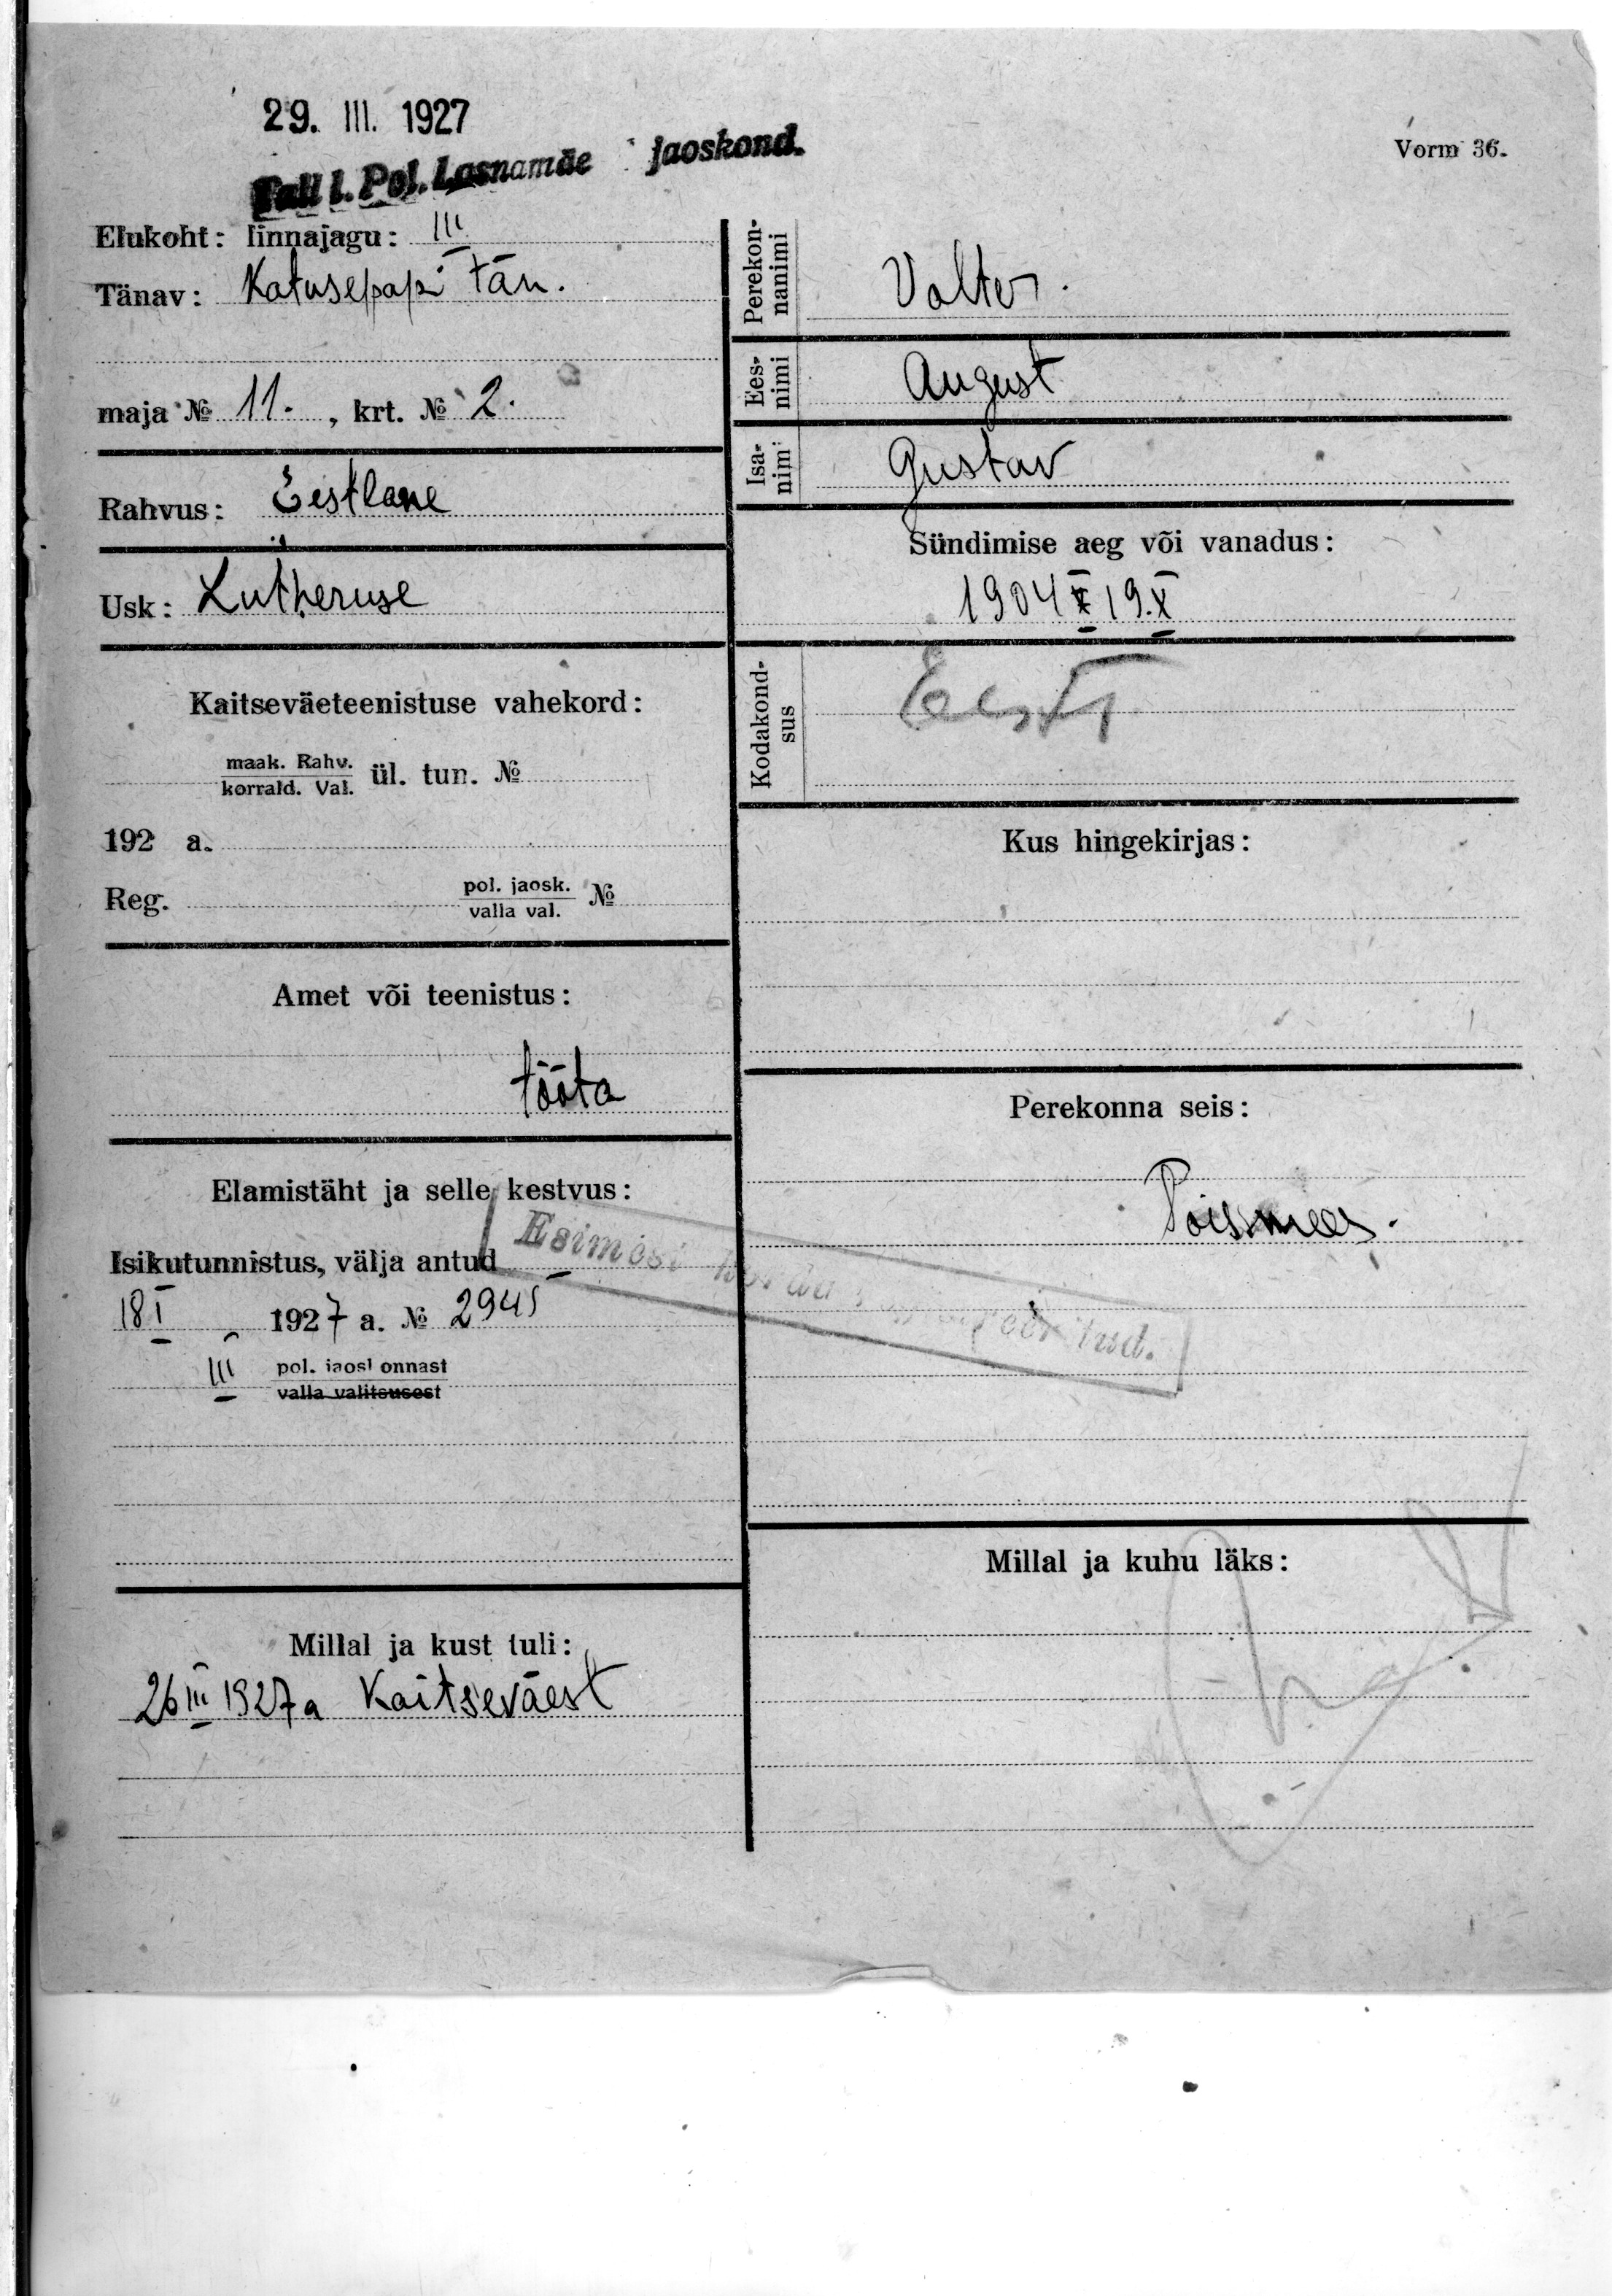 29. III. 1927
Tall l. Pol. Lasnamäe jaoskond.
Vorm 36.
Elukoht: linnajagu: III
Tänav: Katusepapi tän.
maja № 11. , krt. № 2.
Rahvus: Eestlane
Usk: Lutheruse
Kaitseväeteenistuse vahekord:
maak. Rahv.
korrald. Val. ül. tun. №
192 a.
Reg. pol. jaosk.
valla val. №
Amet või teenistus:
tööta
Elamistäht ja selle kestvus:
Isikutunnistus, välja antud
18 I 1927 a. № 2945
III pol. jaosk onnast
valla valitsusest
Millal ja kust tuli:
26 III 1927 a Kaitseväest
Perekon-
nanimi
Valter.
Ees-
nimi
August
Isa-
nimi
Gustav
Sündimise aeg või vanadus:
1904 X 19.X
Kodakond-
sus
Eesti
Kus hingekirjas:
Perekonna seis:
Poissmees.
Esimosi
Millal ja kuhu läks: